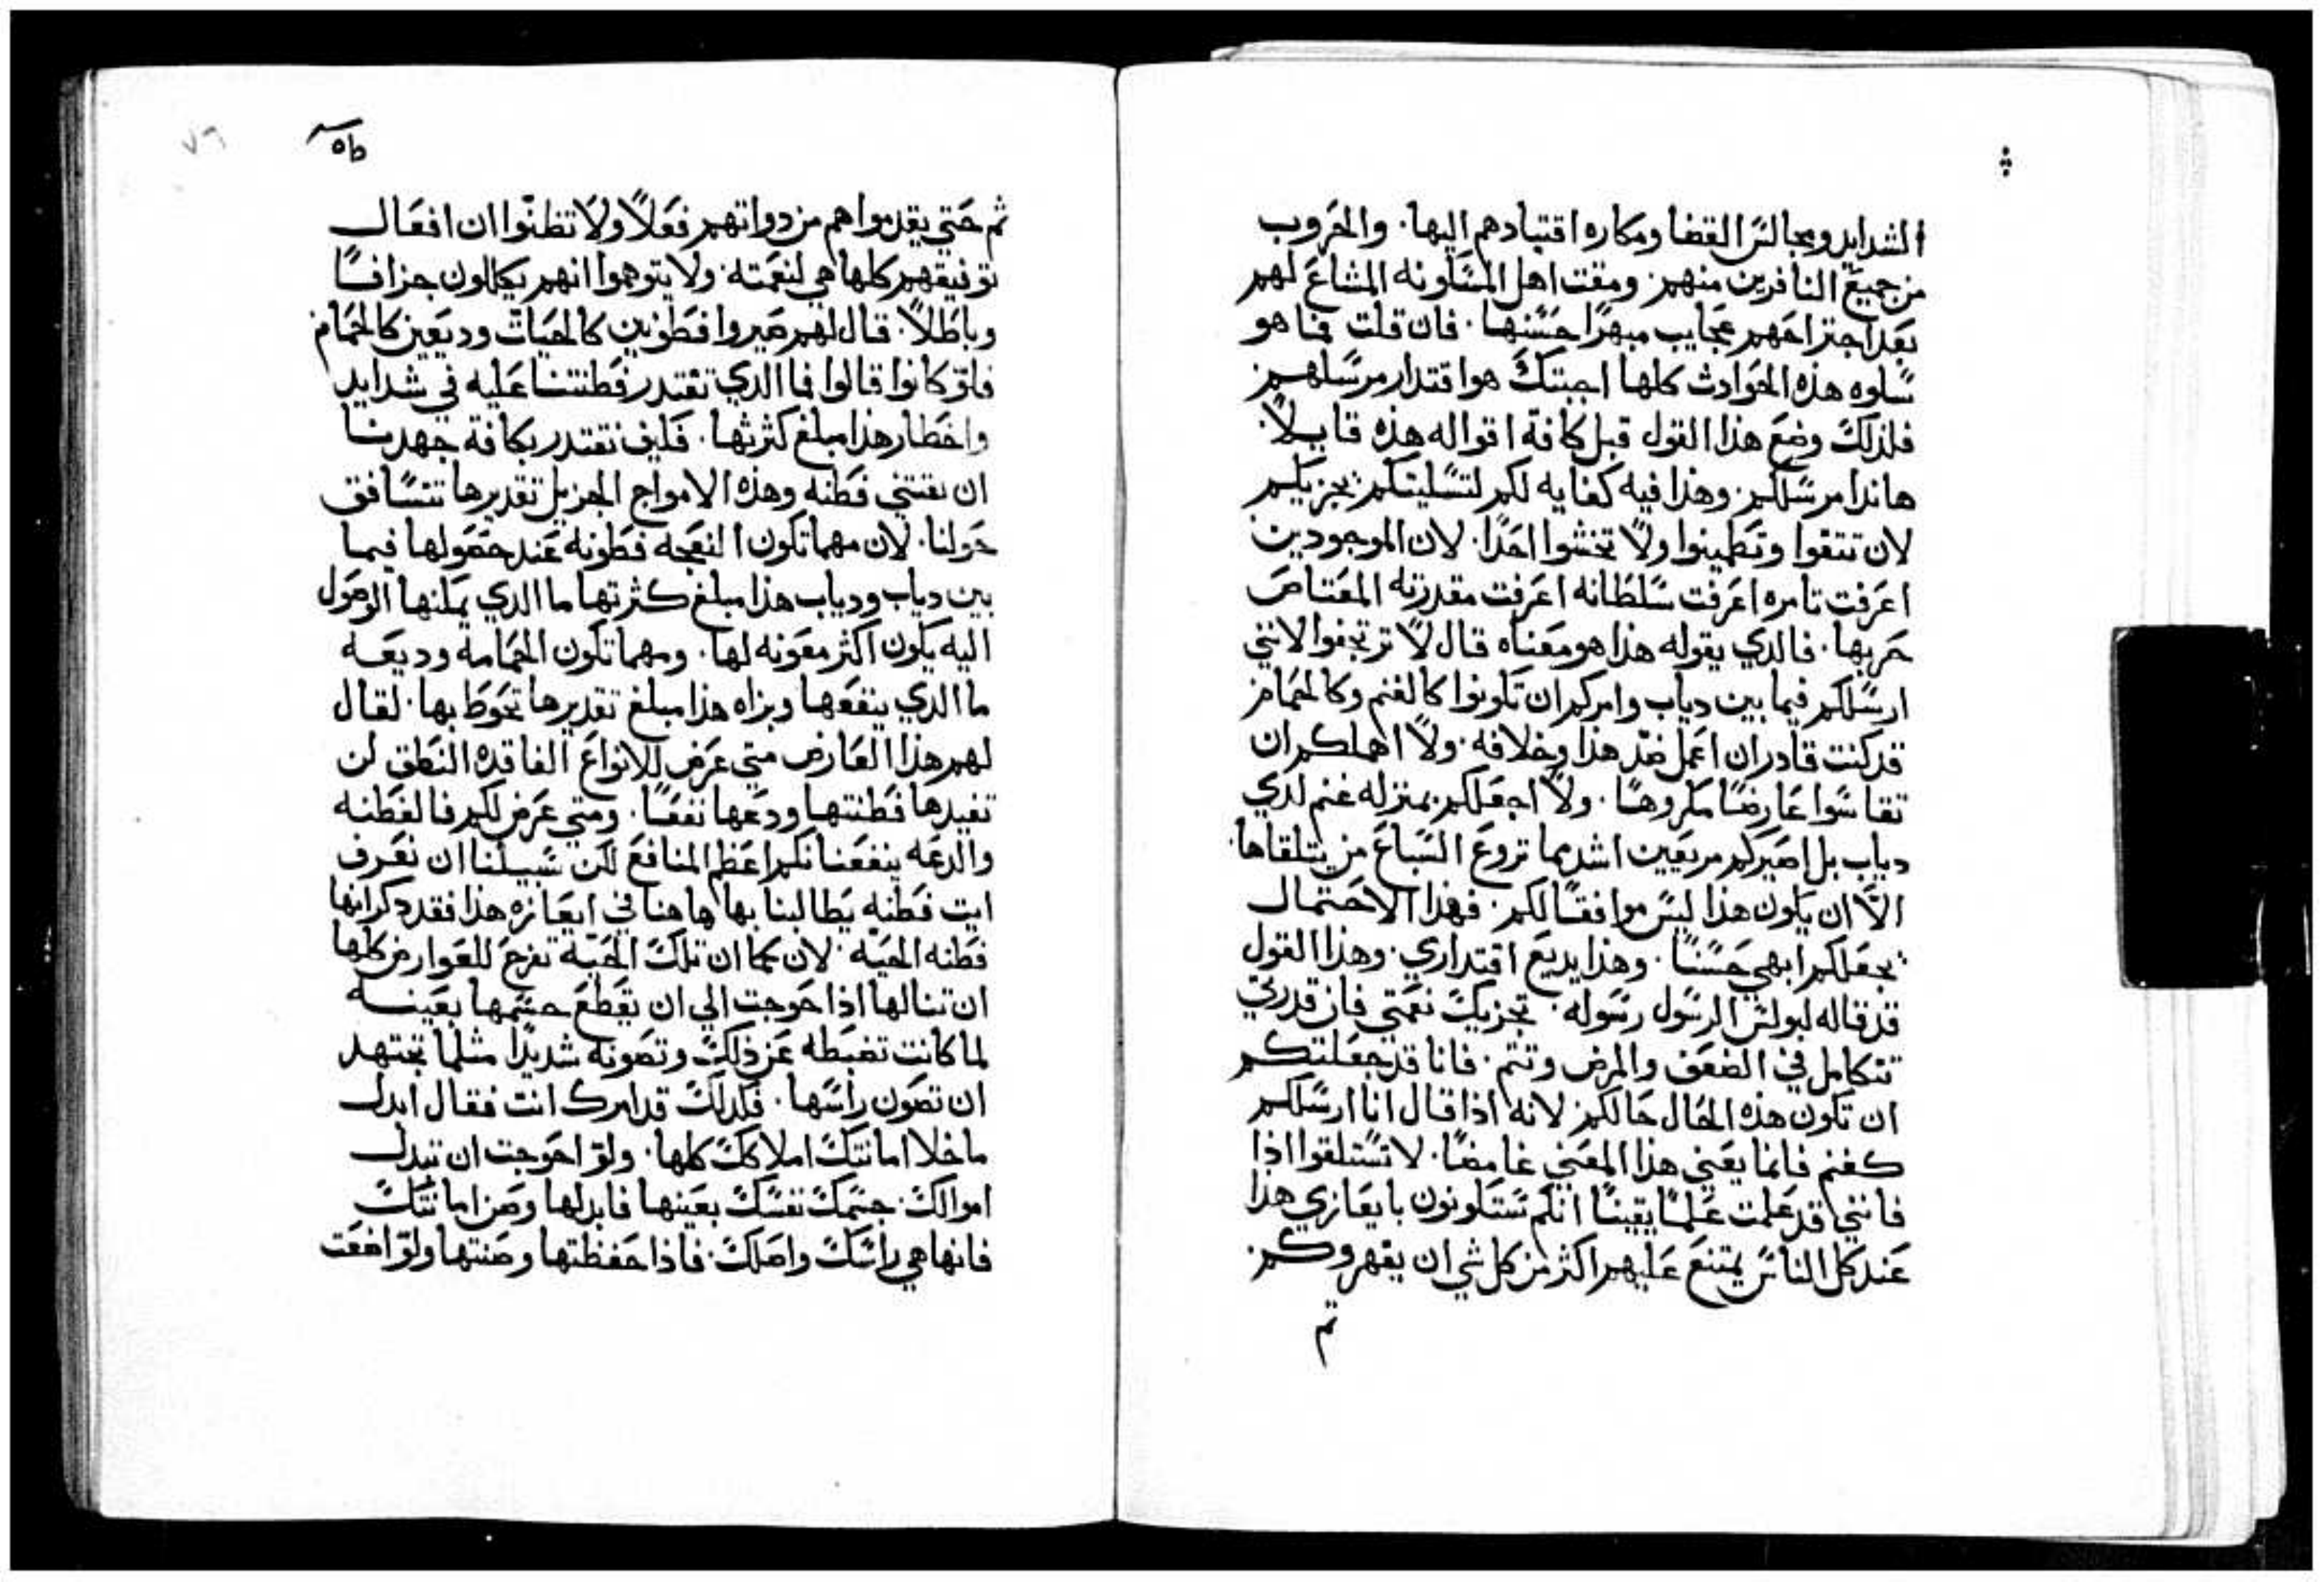 الشدايد ومجالس القضا ومكاره اقتيادهم اليها. والحروب
من جميع النافرين منهم. ومقت اهل المسكونه المشاع لهم
بعد اجتراحهم عجايب مبهرًا حسنها. فان قلت فما هو
سلوه هذه الحوادث كلها اجبتك هو اقتدار مرسلهم
فلذلك وضع هذا القول قبل كافة اقواله هذه قايلاً.
هاندا مرسلكم. وهذا فيه كفايه لكم لتسليتكم يجزيكم
لان تتقوا وتطمينوا ولا تخشوا احدًا. لان الموجودين
اعرفت تامره اعرفت سلطانه اعرفت مقدرته المعتاص
حربها. فالدي يقوله هذا هو معناه قال لا ترتجفوا لانني
ارسلكم فيما بين دياب وامركم ان تكونوا كالغنم وكالحمام
قد كنت قادر ان اعمل ضد هذا وخلافه. ولا اهملكم ان
تقاسوا عارضًا مكروهًا. ولا اجعلكم بمنزله غنم لدي
دياب بل اصيركم مريعين اشد مما تروع السباع من يتلقاها.
الا ان يكون هذا ليس موافقًا لكم. فهذا الاحتمال
يجعلكم ابهي حسنًا. وهذا يديع اقتداري. وهذا القول
قد قاله لبولس الرسول رسوله. تجزيك نعمتي فان قدرتي
تتكامل في الضعف والمرض وتتم. فانا قد جعلتكم
ان تكون هذه الحال حالكم لانه اذا قال انا ارسلكم
كغنم فانما يعني هذا المعني غامضًا. لا تستلقوا اذا
فانني قد علمت علمًا يقينًا انكم ستكونون بايعازي هذا
عند كل الناس يمتنع عليهم اكثر من كل شي ان يقهروكم
ثم
ثم حتي يقدموا هم من دواتهم فعلاً ولا تظنوا ان افعال
توفيقهم كلها هي لنعمته. ولا يتوهموا انهم يكللون جزافًا
وباطلاً. قال لهم صيروا فطونين كالحيات وديعين كالحمام
فلو كانوا قالوا فما الدي تقتدر فطنتنا عليه في شدايد
واخطار هذا مبلغ كثرتها. فكيف نقتدر بكافة جهدنا
ان نقتني فطنه وهذه الامواج الجزيل تقديرها تتسافق
حولنا. لان مهما تكون النعجه فطونه عند حصولها فيما
بين دياب ودياب هذا مبلغ كثرتها ما الدي يمكنها الوصول
اليه يكون اكثر معونه لها. ومهما تكون الحمامه وديعه
ما الدي ينفعها وبزاه هذا مبلغ تقديرها تحوط بها. لقال
لهم هذا العارض متي عرض للانواع الفاقده النطق لن
تفيدها فطنتها ودعها نفعًا. ومتي عرض لكم فالفطنه
والدعه ينفعنانكم اعظم المنافع لكن سبيلنا ان نعرف
ايت فطنه يطالبنا بها هاهنا في ايعازه هذا فقد دكر انها
فطنه الحيه. لان كما ان تلك الحية تفرج للعوارض كلها
ان تنالها اذا احوجت الي ان يقطع جسمها بعينه
لما كانت تضبطه عن ذلك وتصونه شديدًا مثلما تجتهد
ان تصون راسها. فلدلك قد امرك انت فقال ابدل
ما خلا امانتك املاكك كلها. ولو احوجت ان تبدل
اموالك. جسمك نفسك بعينها فابدلها وصن امانتك
فانها هي راسك واصلك. فاذا حفظتها وصنتها ولو اضعت